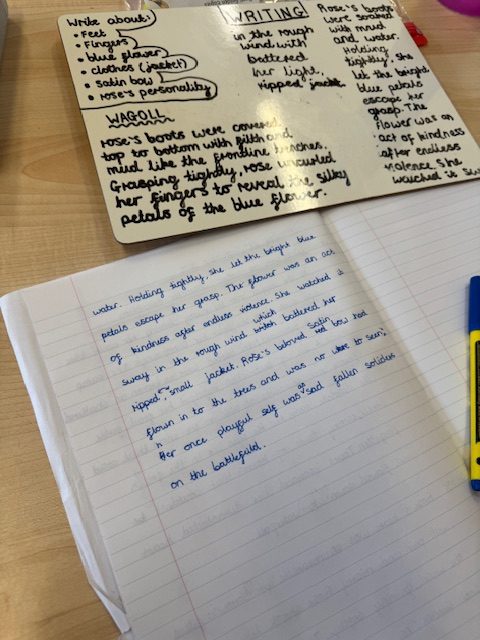 Write about:
• Feet
• Fingers
• blue flower
• clothes (jacket)
• satin bow
• rose's personality
WAGOLL
rose's boots were covered
top to bottom with filth and
mud like the frontline trenches.
Grasping tightly, rose uncurled
her fingers to reveal the silky
petals of the blue flower.
WRITING
in the rough
wind with
battered
her light,
ripped jacket.
Rose's boots
were soaked
with mud
and water.
Holding
tightly, she
let the bright
blue petals
escape her
grasp. The
flower was an
act of kindness
after endless
violence. She
watched it sway
water. Holding tightly, she let the bright blue
petals escape her grasp. The flower was an act
of kindness after endless violence. She watched it
sway in the rough wind which battered her
ripped, small jacket. Rose's beloved, satin, red bow had
flown in to the trees and was no where to seen;
Her once playful self was as sad fallen soliders
on the battlefield.